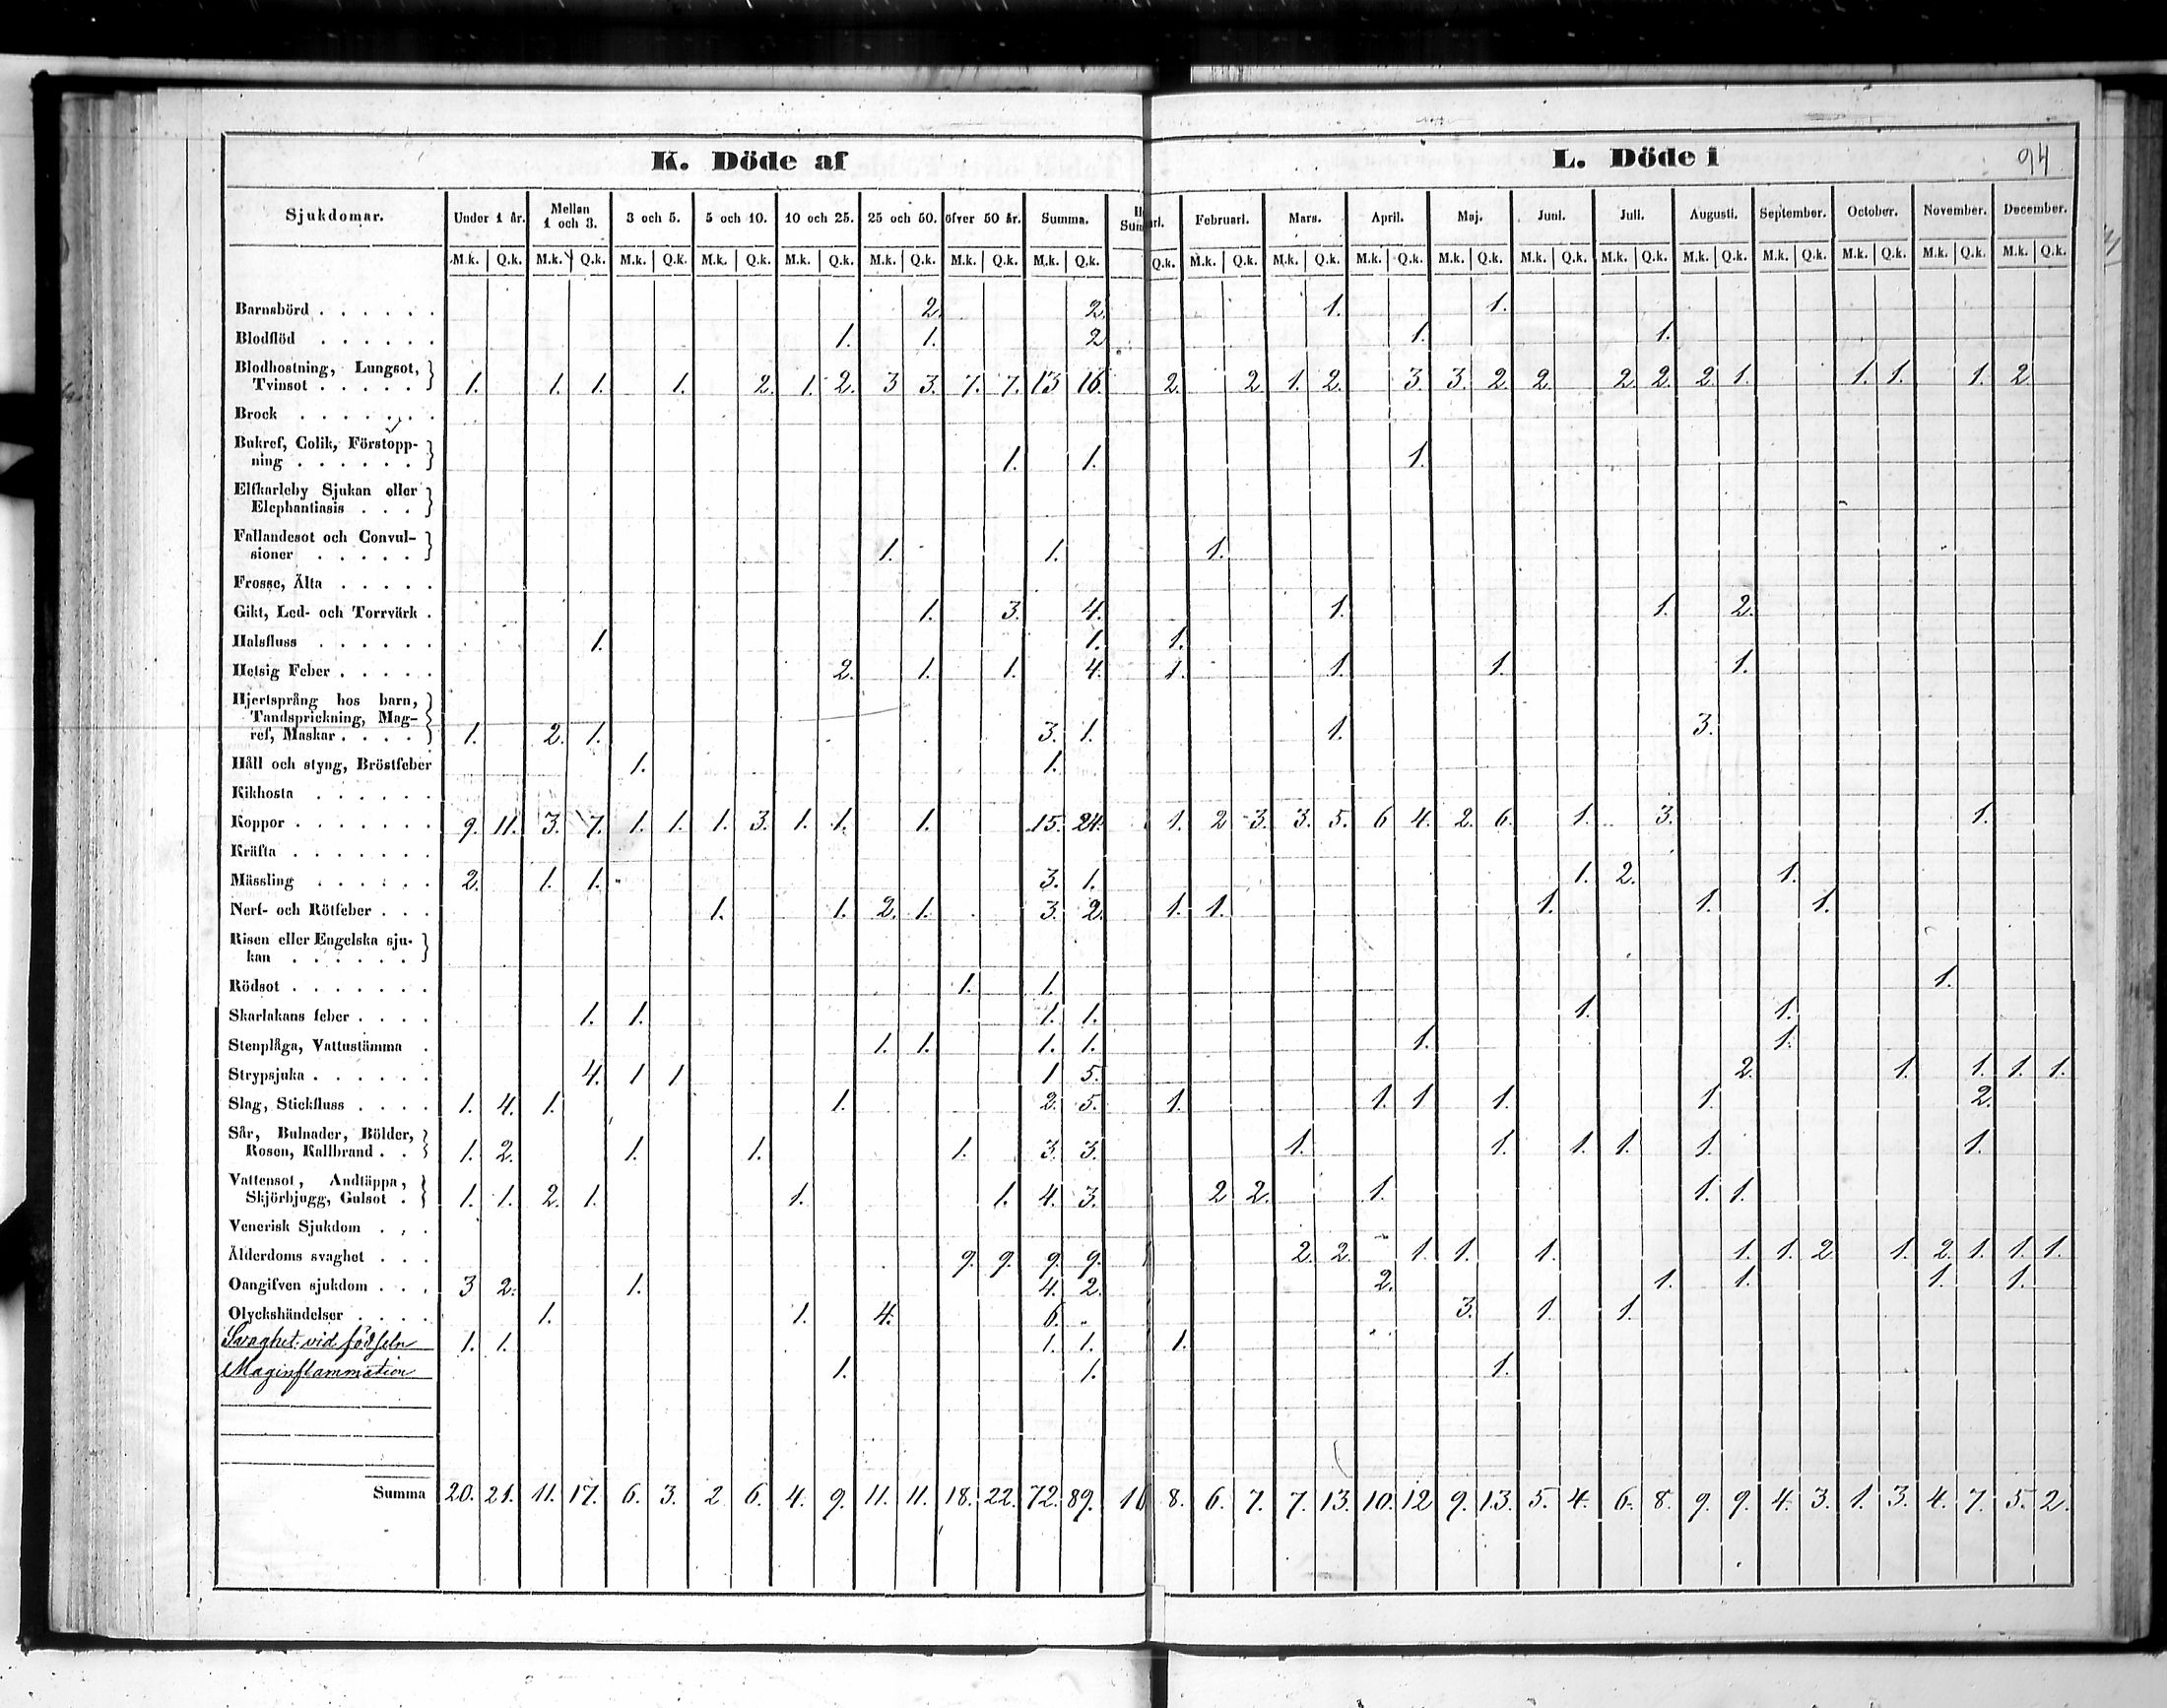 K. Döde af L. Döde i 94
Sjukdomar. Under 1 år. Mellan 1 och 3. 3 och 5. 5 och 10. 10 och 25. 25 och 50. öfver 50 år. Summa. Februari. Mars. April. Maj. Juni. Juli. Augusti. September. October. November. December.
M.k. Q.k. M.k. Q.k. M.k. Q.k. M.k. Q.k. M.k. Q.k. M.k. Q.k. M.k. Q.k. M.k. Q.k. Q.k. M.k. Q.k. M.k. Q.k. M.k. Q.k. M.k. Q.k. M.k. Q.k. M.k. Q.k. M.k. Q.k. M.k. Q.k. M.k. Q.k. M.k. Q.k. M.k. Q.k.
Barnsbörd . . . . . . 2. 2. 1. 1.
Blodflöd . . . . . . 1. 1. 2 1. 1.
Blodhostning, Lungsot,
Tvinsot . . . . . 1. 1. 1. 1. 2. 1. 2. 3 3. 7. 7. 13 16. 2. 2 1. 2. 3. 3. 2. 2. 2. 2. 2. 1. 1. 1. 1. 2
Brock . . . . . . .
Bukref, Colik, Förstopp-
ning . . . . . . 1. 1. 1.
Elfkarleby Sjukan eller
Elephantiasis . . .
Fallandesot och Convul-
sioner . . . . . 1. 1. 1.
Frosse, Älta . . . . .
Gikt, Led- och Torrvärk . 1. 3. 4. 1. 1. 2.
Halsfluss . . . . . . 1. 1. 1.
Hetsig Feber . . . . . 2. 1. 1. 4. 1. 1. 1. 1.
Hjertsprång hos barn,
Tandsprickning, Mag-
ref, Maskar . . . . 1. 2. 1. 3. 1. 1. 3.
Håll och styng, Bröstfeber 1. 1.
Kikhosta . . . . . .
Koppor . . . . . . . 9. 11. 3. 7. 1. 1. 1. 3. 1. 1. 1. 15. 24. 1. 2 3. 3. 5. 6 4. 2. 6. 1. 3. 1.
Kräfta . . . . . . .
Mässling . . . . . . 2. 1. 1. 3. 1. 1. 2. 1.
Nerf- och Rötfeber . . . 1. 1. 2. 1. 3. 2. 1. 1. 1. 1. 1.
Risen eller Engelska sju-
kan . . . . . .
Rödsot . . . . . . . 1. 1. 1.
Skarlakans feber . . . . 1. 1. 1. 1. 1. 1.
Stenplåga, Vattustämma . 1. 1. 1. 1. 1. 1.
Strypsjuka . . . . . . 4. 1 1 1 5. 2. 1. 1. 1. 1.
Slag, Stickfluss . . . . 1. 4. 1. 1. 2. 5. 1. 1. 1 1. 1. 2.
Sår, Bulnader, Bölder,
Rosen, Kallbrand . . 1. 2. 1. 1. 1. 3. 3. 1. 1. 1. 1. 1. 1.
Vattensot, Andtäppa,
Skjörbjugg, Gulsot . 1. 1. 2. 1. 1. 1. 4. 3. 2 2. 1. 1. 1.
Venerisk Sjukdom . . .
Ålderdoms svaghet . . . 9. 9. 9. 9. 2. 2. 1. 1. 1. 1. 1. 2 1. 2. 1. 1. 1.
Oangifven sjukdom . . . 3 2. 1. 4. 2. 2. 1. 1. 1. 1.
Olyckshändelser . . . . 1. 1. 4. 6. 3. 1. 1.
Svaghet vid födseln 1. 1. 1. 1. 1.
Maginflammation 1. 1. 1.
Summa 20. 21. 11. 17. 6. 3. 2 6. 4. 9. 11. 11. 18. 22. 72. 89. 16 8. 6. 7. 7. 13. 10. 12 9. 13. 5. 4. 6. 8. 9. 9. 4. 3. 1. 3. 4. 7. 5. 2.